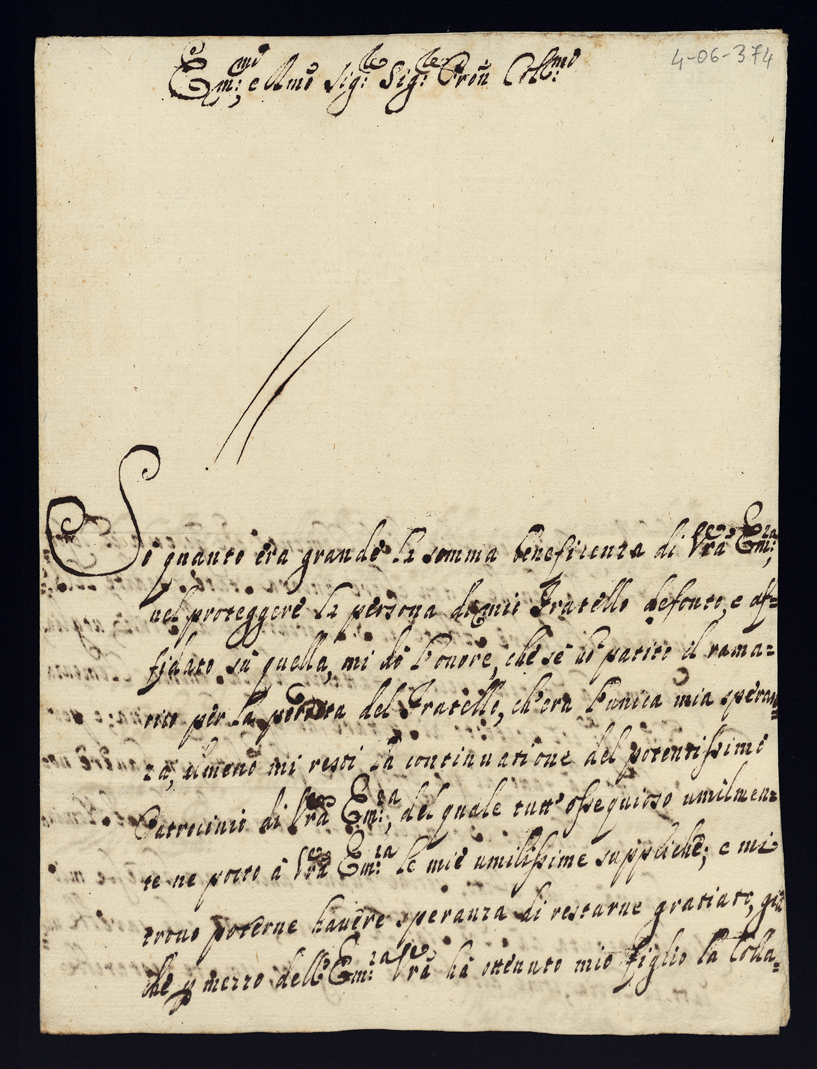 4-06-374
Em:mo e Rmo Sig:re Sig:re Pron Col:mo
So quanto era grande la somma beneficenza di Vra Em:za
nel proteggere la persona di mio Fratello defonto, e af=
fidato sù quella, mi dò l'onore, che se hò patito il rama=
rico per la perdita del Fratello, ch'era l'unica mia speran=
za, almeno mi resti la continuatione del potentissimo
Patrocinio di Vra Em:za, del quale tutt'ossequioso umilmen=
te ne porto à Vra Em:za le mie umilissime suppliche; e mi
trovo poterne havere speranza di restarne gratiato, già
che p mezzo dell'Em:za Vra hà ottenuto mio figlio la Colla=